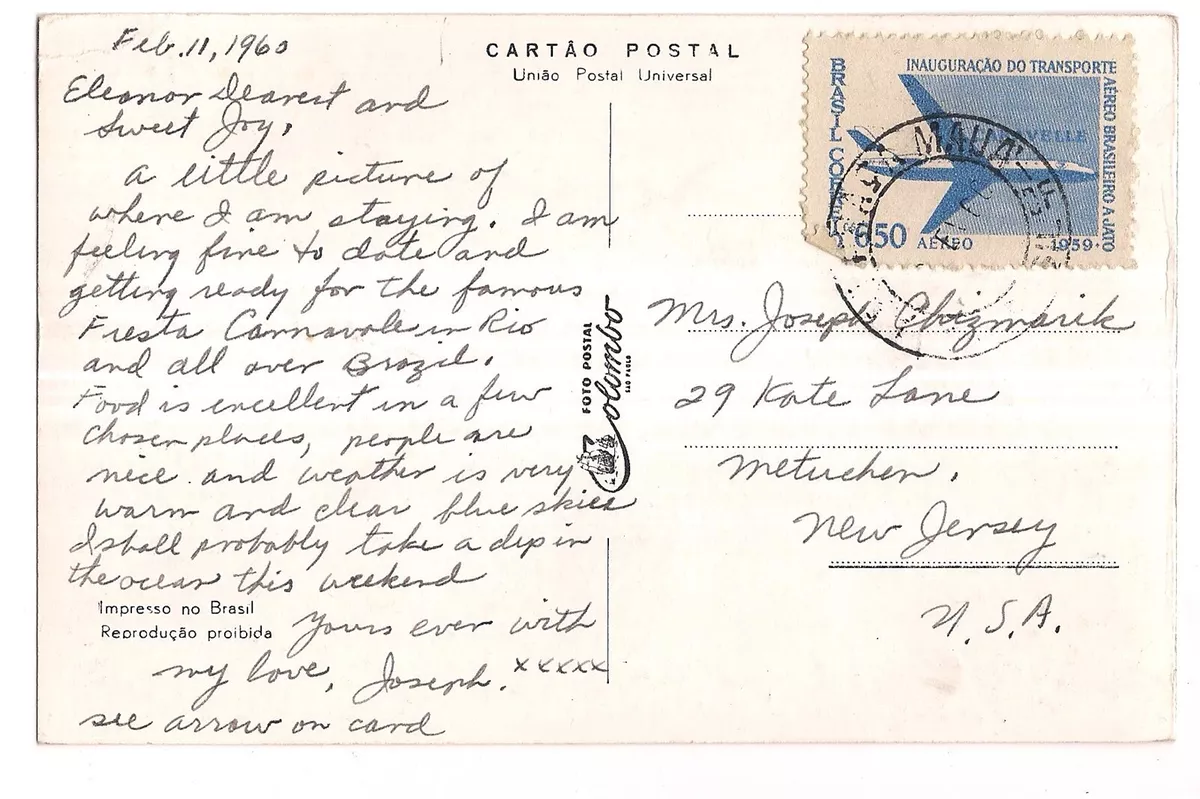 Feb. 11, 1960
Eleanor Dearest and
Sweet Joy,
A little picture of
where I am staying. I am
feeling fine to date and
getting ready for the famous
Fiesta Carnavale in Rio
and all over Brazil.
Food is excellent in a few
chosen places, people are
nice and weather is very
warm and clear blue skies
I shall probably take a dip in
the ocean this weekend
Yours ever with
my love, Joseph. xxxxx
see arrow on card
Impresso no Brasil
Reprodução proibida
CARTÂO POSTAL
União Postal Universal
FOTO POSTAL
Colombo
SÃO PAULO
BRASIL CORREIO
INAUGURAÇÃO DO TRANSPORTE
AÉREO BRASILEIRO A JATO
CARAVELLE
650
AÉREO
1959
MAUÁ
Mrs. Joseph Chizmarik
29 Kate Lane
Metuchen,
New Jersey
U.S.A.